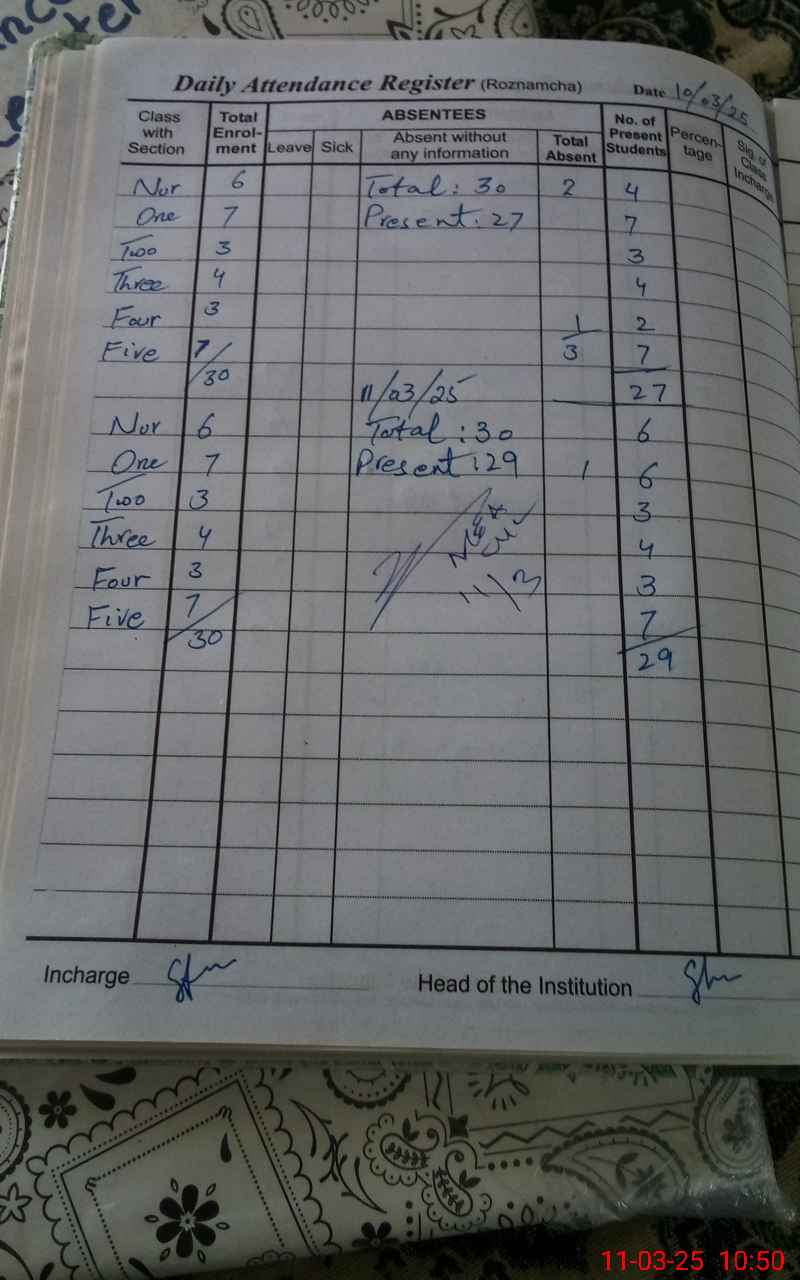 Daily Attendance Register (Roznamcha) Date 10/03/25
Class with Section Total Enrol-ment ABSENTEES No. of Present Students Percen-tage Sig. of Class Incharge
Leave Sick Absent without any information Total Absent
Nur 6 Total: 30 2 4
One 7 Present: 27 7
Two 3 3
Three 4 4
Four 3 1 2
Five 7 3 7
30 11/03/25 27
Nur 6 Total: 30 6
One 7 Present: 29 1 6
Two 3 3
Three 4 4
Four 3 11/3 3
Five 7 7
30 29
Incharge Head of the Institution
11-03-25 10:50